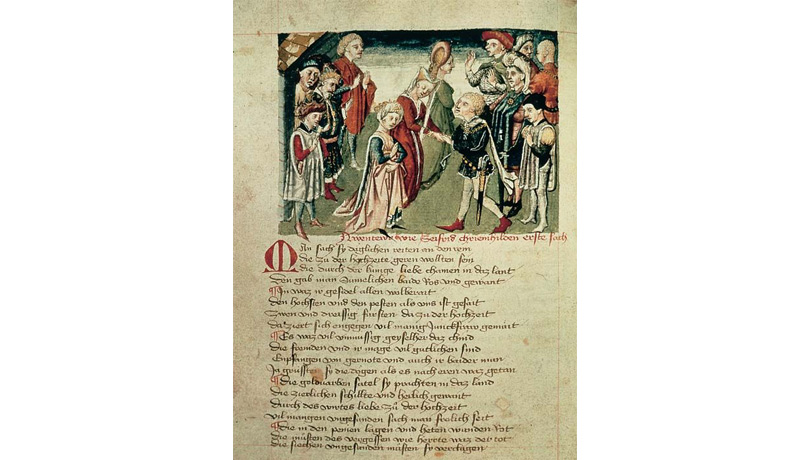 Awentewr wie Seifrid chriemhilden erste sach
Man sach sy däglichen reiten an den rein
die zu der hochzeite geren wollten sein
die durch der kunige liebe chamen in daz lant
den gab man sümelichen baide Ros vnd gewant
In waz ir gesidel allen wolberait
den hochsten vnd den pesten als vns ist gesait
Zwen vnd dreissig fursten da zu der hochzeit
da ziert sich engegen vil manig Junckfraw gemait
Es waz vil vnmuessig geyselher daz chind
die fremden vnd ir mage vil gutlichen sind
Enpfangen von gernote vnd auch ir baider man
Ja grussten sy die degen als es nach eren waz getan
Die goldvarben satel sy prachten in daz land
die zierlichen schillte vnd herlich gewant
durch des wirtes liebe zu der hochzeit
vil mangen vngesunden sach man frolich seit
Die in den petten lagen vnd heten wunden not
die müsten des vergessen wie herte waz der tot
die siechen vngesunden müsten sy verclagen